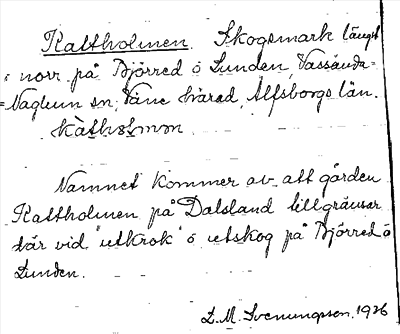 Kattholmen. Skogsmark längst
i norr på Björred ö Lunden, Vassända=
=Naglum sn, Väne härad, Älfsborgs län.
kàthòlmon
Namnet kommer av att gården
Kattholmen på Dalsland till gränsar
där vid "utkrok" ö utskog på Björred ö
Lunden.
L. M. Svenungsson, 1926